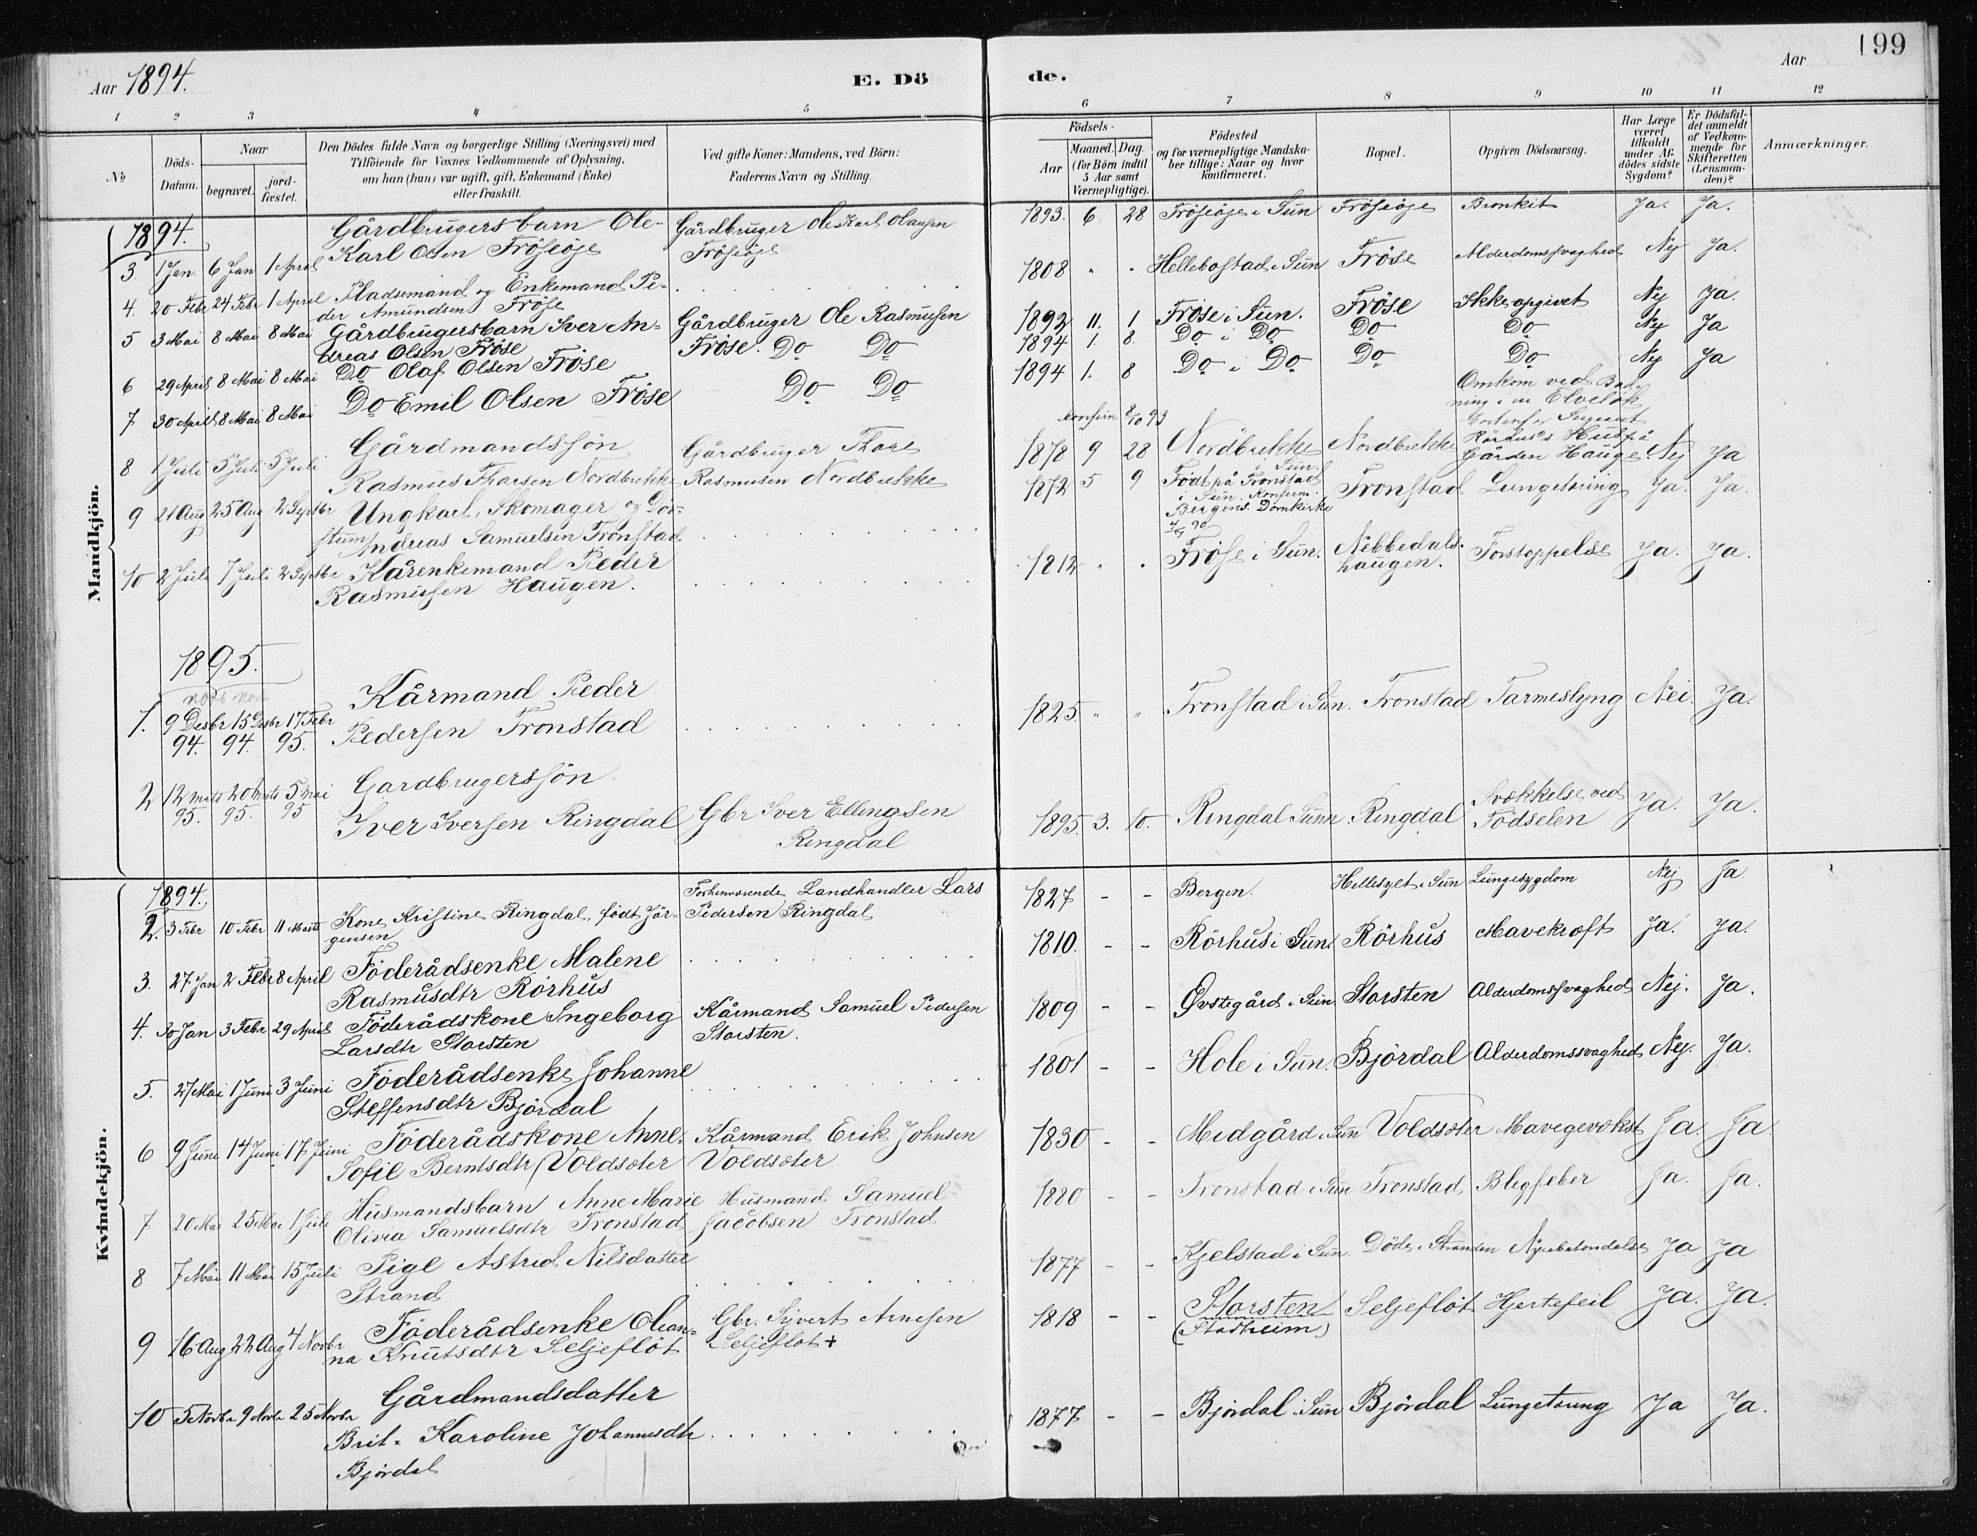 Aar 1894.
E. Dö
de.
Aar
199
1 2 3 4 5 6 7 8 9 10 11 12
No
Döds-Datum.
Naar
begravet.
jord-fæstet.
Den Dödes fulde Navn og borgerlige Stilling (Næringsvei) med
Tilföiende for Voxnes Vedkommende af Oplysning,
om han (hun) var ugift, gift, Enkemand (Enke)
eller fraskilt.
Ved gifte Koner: Mandens, ved Börn:
Faderens Navn og Stilling.
Födsels-
Aar
Maaned. Dag.
(for Börn indtil
5 Aar samt
Værnepligtige).
Födested
og for værnepligtige Mandska-
ber tillige: Naar og hvor
konfirmeret.
Bopæl.
Opgiven Dödsaarsag.
Har Læge
været
tilkaldt
under Af-
dödes sidste
Sygdom?
Er Dödsfal-
det anmeldt
af Vedkom-
mende for
Skifteretten
(Lensman-
den)?
Anmærkninger.
Mandkjön.
1894.
3. 1 Jan. 6 Jan 1 April Gårdbrugers barn Ole Karl Olsen Fröseöje Gårdbruger Ole Karl Olausen Fröseöje 1893. 6. 28 Fröseöje i Sun Fröseöje Bronkit Ja. Ja.
4. 20 Febr 24 Febr 1 April Pladsemand og Enkemand Pe-
der Amundsen Fröse 1808 " " Hellebostad i Sun Fröse Alderdomssvaghed Nej Ja.
5 3 Mai 8 Mai 8 Mai Gårdbrugersbarn Iver An-
dreas Olsen Fröse Gårdbruger Ole Rasmusen Fröse. 1892 11. 1 Fröse i Sun. Fröse Ikke opgivet Nej Ja.
6 29 April 8 Mai 8 Mai Do Olaf Olsen Fröse Do Do 1894 1. 8. Do i Do Do Do Nej Ja
7 30 April 8 Mai 8 Mai Do Emil Olsen Fröse Do Do 1894 1. 8 Do i Do Do Do Nej Ja
8 1 Juli 5 Juli 5 Juli Gårdmandssön
Rasmus Thorsen Nordbrekke Gårdbruger Thore
Rasmusen Nordbrekke konfirm 8/10 93 1878 9 28 Nordbrekke i Sun. Nordbrekke Omkom ved Bad-
ning i en Elv
Rörhus's Hus på
Gården Hauge. Nej Ja
9 21 Aug 25 Aug 2 Septbr Ungkarl, Skomager og Döv-
stum Andreas Samuelsen Fronstad 1872 5 9 Födt på Fronstad
i Sun. Konfirm.
Bergens Domkirke Fronstad Lungetæring Ja. Ja.
10 2 Juli 7 Juli 2 Septbr Kårenkemand Peder
Rasmusen Haugen. 1812 " " Fröse i Sun. Nebbedals-
haugen. Forstoppelse Ja. Ja.
1895.
1. 9 Desbr 94. 15 Desbr 94. 17 Febr 95. Kårmand Peder
Pedersen Fronstad 1825. " " Fronstad i Sun. Fronstad Tarmeslyng Nei. Ja.
2 12 Mats 95. 20 Mats 95. 5 Mai 95 Gardbrugerssön
Iver Iversen Ringdal Gbr Iver Ellingsen
Ringdal 1895. 3. 10. Ringdal Sunn. Ringdal Svækkelse ved
Födselen Ja. Ja.
Kvindekjön.
1894.
2. 3 Febr 10 Febr 11 Marts Kone Kristine Ringdal, födt Jör-
gensen Forhenværende Landhandler Lars
Pedersen Ringdal 1827 - - Bergen. Hellesylt i Sun Lungesygdom Nej Ja
3. 27 Jan 2 Febr 8 April Föderådsenke Malene
Rasmusdtr Rörhus 1810. - - Rörhus i Sun Rörhus Mavekræft Ja. Ja.
4. 30 Jan 3 Febr 29 April Föderådskone Ingeborg
Larsdtr Storsten Kårmand Samuel Pedersen
Storsten. 1809 - - Øvstegård i Sun Storsten Alderdomssvaghed Nej. Ja.
5. 27 Mai 1 Juni 3 Juni Föderådsenke Johanne
Steffensdtr Björdal 1801 - - Hole i Sun. Björdal Alderdomssvaghed Nej. Ja.
6 9 Juni 14 Juni 17 Juni Föderådskone Anne
Sofie Berntsdtr Voldsæter Kårmand Erik Johnsen
Voldsæter 1830 - - Midgård i Sun Voldsæter Mavegevækst Ja. Ja
7 20 Mai 25 Mai 1 Juli Husmandsbarn Anne Marie
Olivia Samuelsdtr Fronstad Husmand Samuel
Jacobsen Fronstad 1880 - - Fronstad i Sun Fronstad Blegfeber Ja. Ja.
8 7 Mai 11 Mai 15 Juli Pige Astrid Nilsdatter
Strand 1877 - - Kjelstad i Sun. Döde i Stranden Nyrebetændelse Ja Ja
9 16 Aug 22 Aug 4 Novbr Föderådsenke Olean-
na Knutsdtr Seljeflöt Gbr. Syvert Arnesen
Seljeflöt + 1818 - - Storsten
(Stadheim) Seljeflöt Hjertefeil Ja. Ja.
10 5 Novbr 9 Novbr 25 Novbr Gårdmandsdatter
Brit-Karoline Johannesdtr
Björdal 1877 - - Björdal i Sun Björdal Lungetæring Ja Ja.